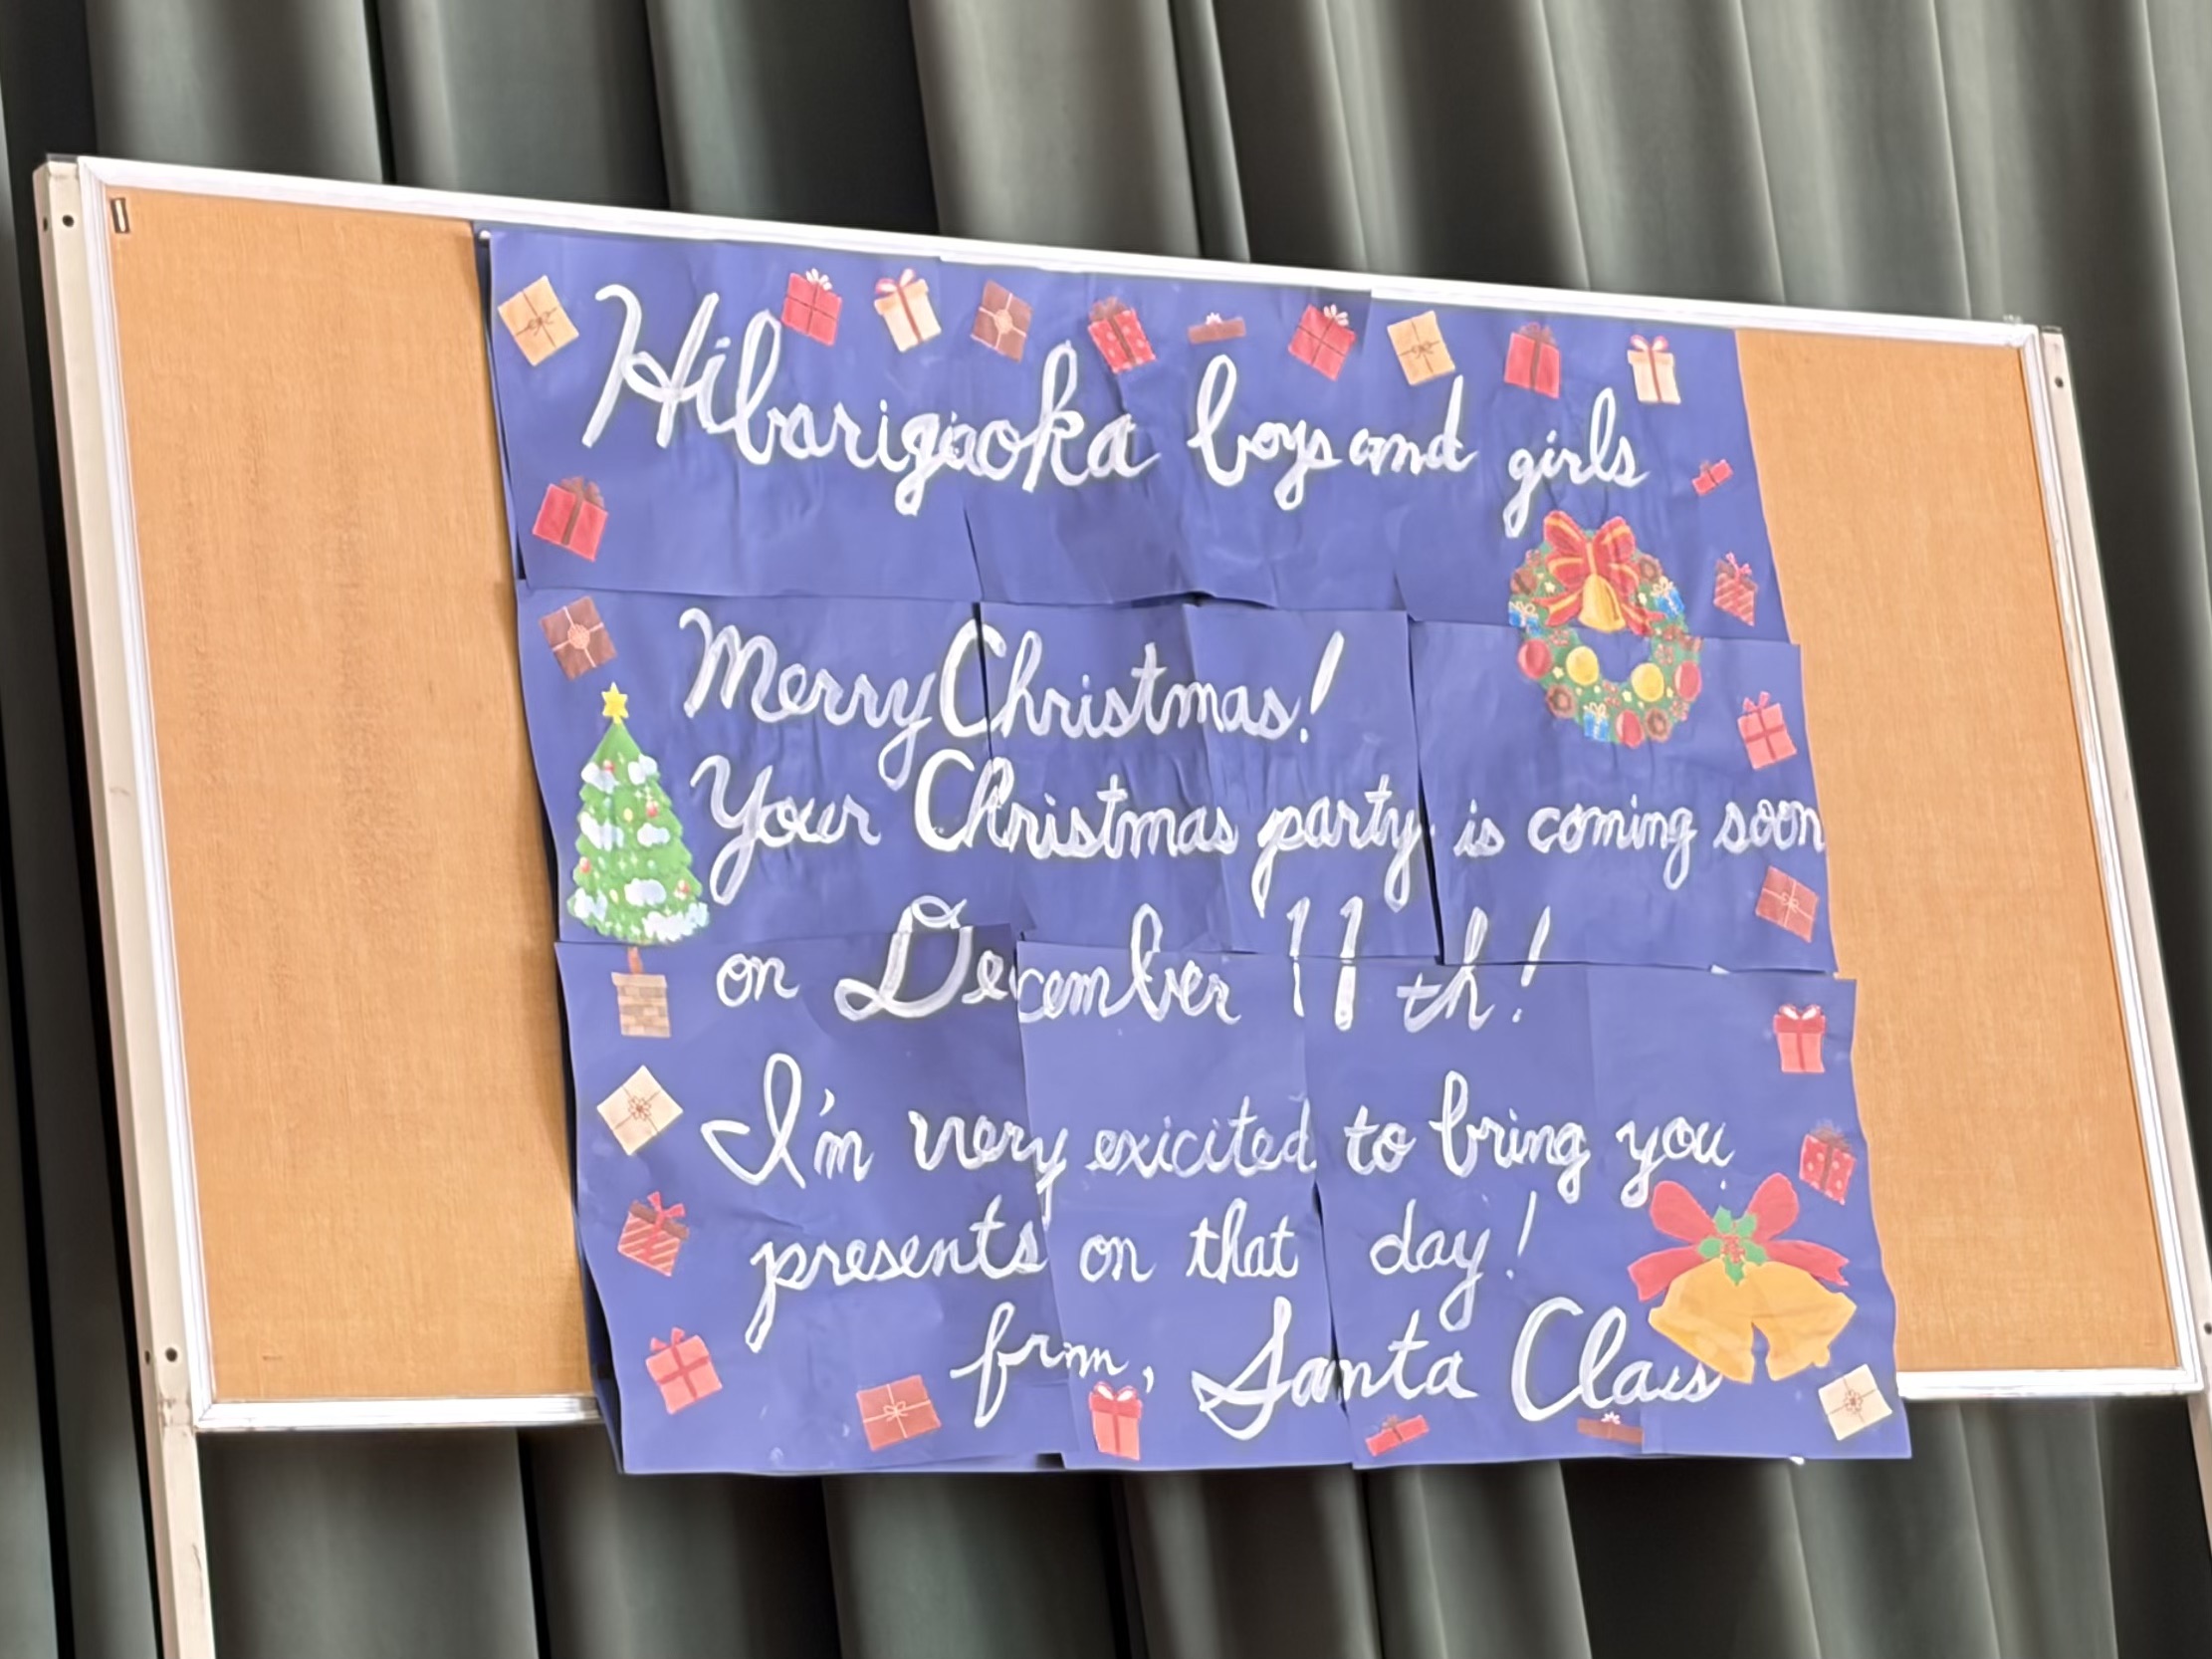 Hibarigaoka boys and girls
Merry Christmas!
Your Christmas party is coming soon
on December 11th!
I'm very exicited to bring you
presents on that day!
from, Santa Claus